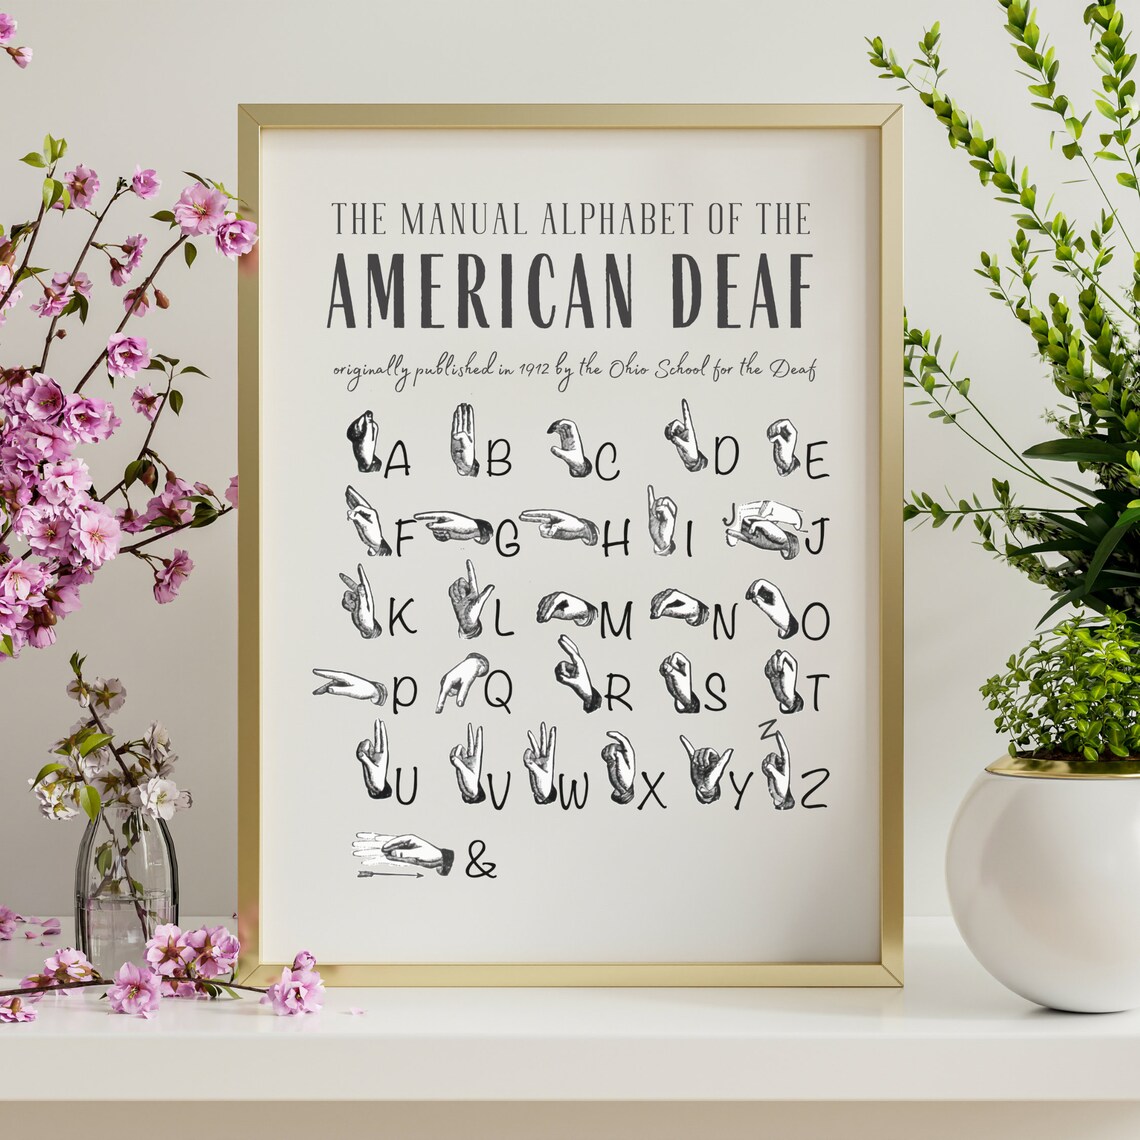 THE MANUAL ALPHABET OF THE
AMERICAN DEAF
originally published in 1912 by the Ohio School for the Deaf
A B C D E
F G H I J J
K L M N O
P Q R S T
U V W X Y Z Z
&